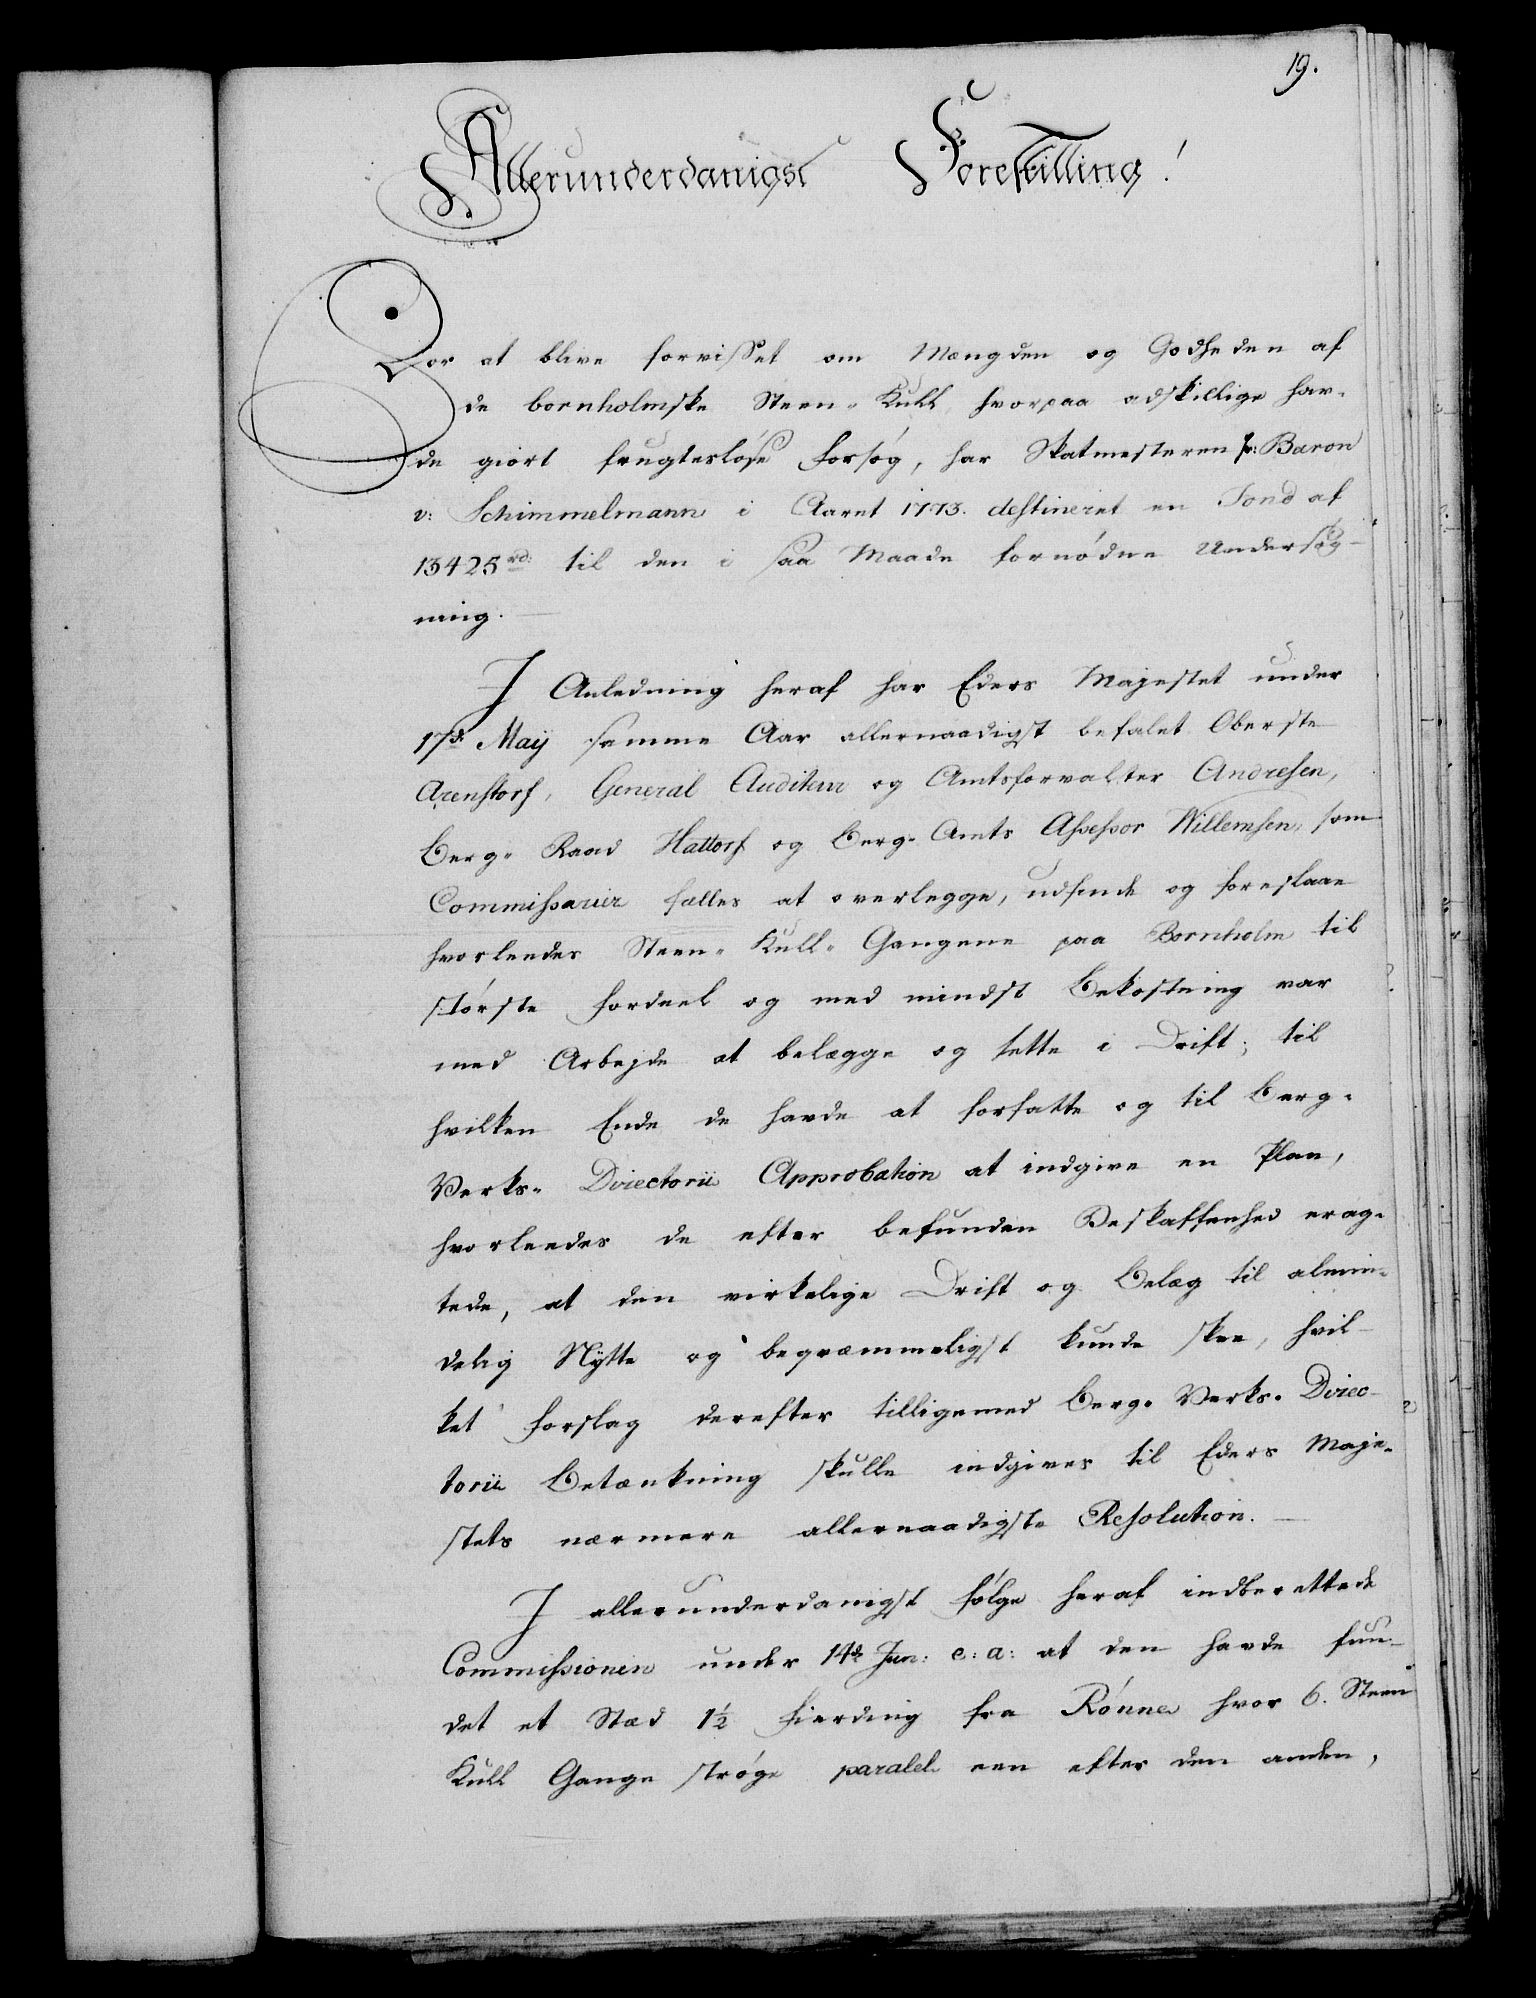 19.
Allerunderdanigst Forestilling!
For at blive forvisset om Mængden og Godheden af
de bornholmske Steen-Kull, hvorpaa adskillige hav-
de giort frugtesløse Forsøg, har Skatmesteren Hr: Baron
v: Schimmelmann i Aaret 1773. destineret en Fond af
13425 rd: til den i saa Maade fornødne Undersøg-
ning. —
I Anledning heraf har Eders Majestet under
17d: Maÿ samme Aar allernaadigst befalet Oberste
Arenstorf, General Auditeur og Amtsforvalter Andresen,
Berg-Raad Hattorf og Berg-Amts Assessor Willemsen, som
Commissarier fælles at overlegge, udfinde og foreslaae
hvorleedes Steen-Kull-Gangene paa Bornholm til
største Fordeel og med mindst Bekostning var
med Arbejde at belægge og sette i Drift; til
hvilken Ende de havde at forfatte og til Berg-
Verks-Directorii Approbation at indgive en Plan,
hvorleedes de efter befunden Beskaffenhed erag-
tede, at den virkelige Drift og Belæg til almin-
delig Nytte og beqvæmmeligst kunde skee, hvil-
ket Forslag derefter tilligemed Berg-Verks-Direc-
torii Betænkning skulle indgives til Eders Maje-
stets nærmere allernaadigste Resolution. —
I allerunderdanigst Følge heraf indberettede
Commissionen under 14d: Jun: e: a: at den havde fun-
det et Stæd 1½ Fierding fra Rønne hvor 6. Steen
Kull Gange strøge paralel een efter den anden,